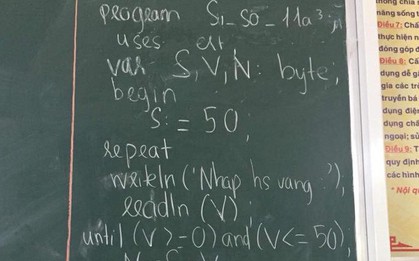 program Si_so_11a3;
uses crt
var S,V,N: byte;
begin
S:=50;
repeat
writeln('Nhap hs vang:');
readln(V);
until (V>=0) and (V<=50);
thông chia s
năng sống t
Điều 7: Chấ
thực hiện n
đóng góp đ
Điều 8: Cấ
dụng dễ gâ
gia các trò
truyền bá
dụng điện
dụng chất
ngoại; sử
Điều 9: T
quy định
các hình
* Nội q